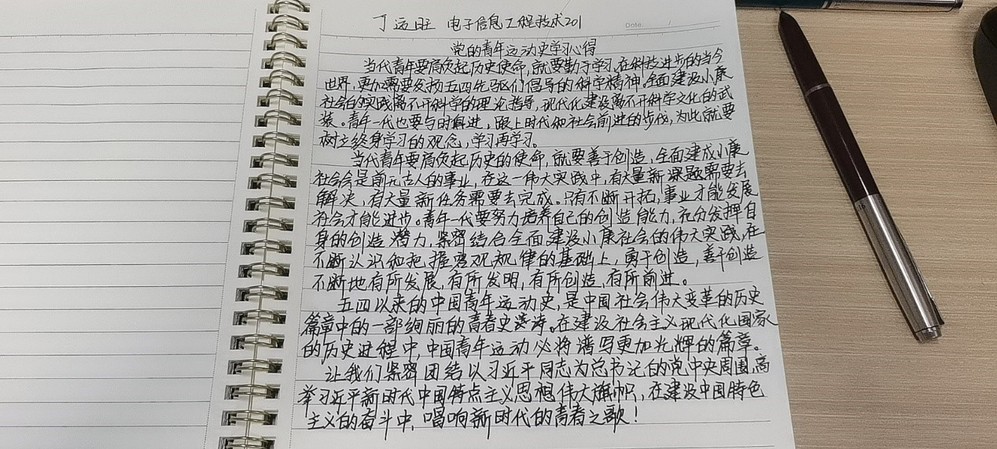 丁运旺 电子信息工程技术201
Date
党的青年运动史学习心得
当代青年要肩负起历史使命,就要勤于学习,在科技进步的当今
世界,更加需要发扬五四先驱们倡导的科学精神,全面建设小康
社会的实践离不开科学的理论指导,现代化建设离不开科学文化的武
装。青年一代也要与时俱进,跟上时代和社会前进的步伐,为此就要
树立终身学习的观念,学习再学习。
当代青年要肩负起历史的使命,就要善于创造,全面建成小康
社会会是前无古人的事业,在这一伟大实践中,有大量新课题需要去
解决,有大量新任务需要去完成。只有不断开拓,事业才能发展
社会才能进步。青年一代要努力培养自己的创造能力,充分发挥自
身的创造潜力,紧密结合全面建设小康社会的伟大实践,在
不断认识和把握客观规律的基础上,勇于创造,善于创造
不断地有所发展,有所发明,有所创造,有所前进。
五四以来的中国青年运动史,是中国社会伟大变革的历史
篇章中的一部绚丽的青春史诗。在建设社会主义现代化国家
的历史进程中,中国青年运动必将谱写更加光辉的篇章。
让我们紧密团结以习近平同志为总书记的党中央周围,高
举习近平新时代中国特点主义思想伟大旗帜,在建设中国特色
主义的奋斗中,唱响新时代的青春之歌!